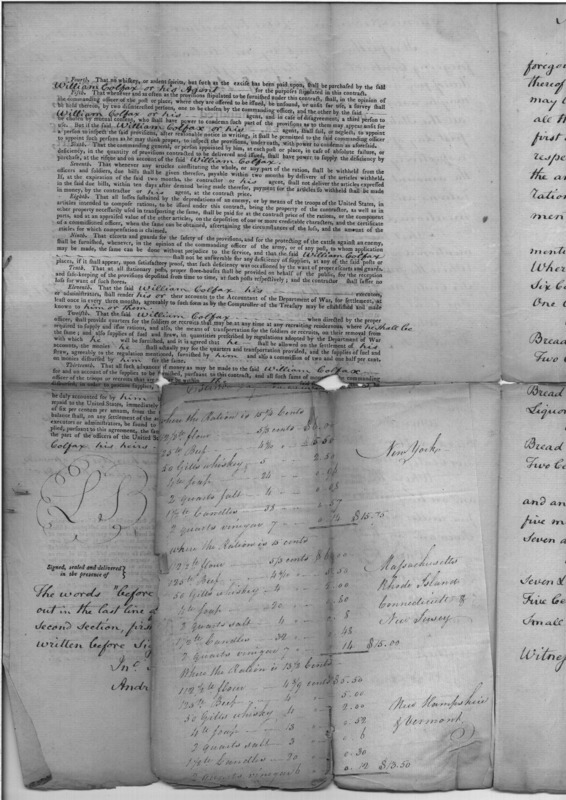 Fourth. That no whiskey, or ardent spirits, but such as the excise has been paid upon, shall be purchased by the said
William Colfax or his Agent for the purposes stipulated in this contract.
Fifth. That whenever and as often as the provisions stipulated to be furnished under this contract, shall, in the opinion of
the commanding officer of the post or place, where they are offered to be issued, be unsound, or unfit for use, a survey shall
be held thereon, by two disinterested persons, one to be chosen by the commanding officer, and the other by the said
William Colfax or his agent, and in case of disagreement, a third person to
be chosen by mutual consent, who shall have power to condemn such part of the provisions as to them may appear unfit for
use. But if the said William Colfax or his agent, shall fail, or neglect, to appoint
a person to inspect the said provisions, after reasonable notice in writing, it shall be permitted to the said commanding officer
to appoint such persons as he may think proper, to inspect the provisions, under oath, with power to condemn as aforesaid.
Sixth. That the commanding general, or person appointed by him, at each post or place, in case of absolute failure, or
deficiency, in the quantity of provisions contracted to be delivered and issued, shall have power to supply the deficiency by
purchase, at the risque and on account of the said William Colfax.
Seventh. That whenever any number constituting the whole, or any part of the ration, shall be withheld from the
officers and soldiers, due bills shall be given therefor, payable within two months by delivery of the articles withheld.
If, at the expiration of the said two months, the contractor or his agent, shall not deliver the articles expressed
in the said due bills, within ten days after demand being made therefor, payment for the articles so withheld shall be made
in money, by the contractor or his agent, at the contract price.
Eighth. That all losses sustained by the depredations of an enemy, or by means of the troops of the United States, in
articles intended to compose rations, to be issued under this contract, being the property of the contractor, as well as in
other property necessarily used in transporting the same, shall be paid for at the contract price of the rations, or the component
parts, and at an appraised value of the other articles, on the deposition of one or more creditable characters, and the certificate
of a commissioned officer, when the same can be obtained, ascertaining the circumstances of the loss, and the amount of the
articles for which compensation is claimed.
Ninth. That escorts and guards for the safety of the provisions, and for the protecting of the cattle against an enemy,
shall be furnished, whenever, in the opinion of the commanding officer of the army, or of any post, to whom application
may be made, the same can be done without prejudice to the service, and that the said William Colfax
shall not be answerable for any deficiency of supplies, at any of the said posts or
places, if it shall appear, upon satisfactory proof, that such deficiency was occasioned by the want of proper escorts and guards.
Tenth. That at all stationary posts, proper store-houses shall be provided on behalf of the public, for the reception
and safe-keeping of the provisions deposited from time to time, at such posts respectively; and the contractor shall suffer no
loss for want of such stores.
Eleventh. That the said William Colfax his executors,
or administrators, shall render his or their accounts to the Accountant of the Department of War, for settlement, at
least once in every three months, agreeably to such form as by the Comptroller of the Treasury may be established and made
known to him or them.
Twelfth. That the said William Colfax when directed by the proper
officer, shall provide quarters for the soldiers or recruits that may be at any time at any recruiting rendezvous, where he shall be
required to supply and issue rations, and also, the means of transportation for the soldiers or recruits, on their removal from
the same; and also supplies of fuel and straw, in quantities prescribed by regulations adopted by the Department of War
with which he will be furnished, and it is agreed that he shall be allowed on the settlement of his
accounts, the monies he shall actually pay for the quarters and transportation provided, and the supplies of fuel and
straw, agreeably to the regulation mentioned, furnished by him and also a commission of two and one half per cent.
on monies disbursed by him for the same.
Thirteenth. That all such advances of money as may be made to the said William Colfax
for and on account of the supplies to be furnished, pursuant to this contract, and all such sums of
officer of the troops or recruits that are
be duly accounted for by him
repaid to the United States, immediately
of six per centum per annum, from the
balance shall, on any settlement of the
executors or administrators, be found to
plied, pursuant to this agreement, the
the part of the officers of the United
Colfax his heirs
Signed, sealed and delivered
in the presence of
The words "before
out in the last line
second section, first
written before Sig
Jnc.
Andr
When the Ration is 15¾ Cents
50 Gills whiskey 5 2.50
4 lb soap 24
2 quarts salt 4
Candles
2 quarts vinegar 7 14 $15.75
New York
When the Ration is 15 cents
flour
Beef
50 Gills whiskey 4 2.00
4 lb soap 20
2 quarts salt 4 8
Candles 32 48
2 quarts vinegar 7 14 $15.00
Massachusetts
Rhode Island
Connecticut &
New Jersey
When the Ration is 13½ Cents
flour $5.50
125 lb Beef 4 5.00
50 Gills whiskey 4 2.00
4 lb soap 13 .52
2 quarts salt 3 6
Candles 20 0.30
2 quarts vinegar 6 0.12 $13.50
New Hampshire
& Vermont
foregoi
thereof
may b
all th
first
respe
the ar
Ration
men
mentio
Where
Six Ce
One C
Bread
Two C
Bread
Liquor
Bread
Two Ce
and an
five m
Seven a
Seven L
Five Ce
Small
Witnes